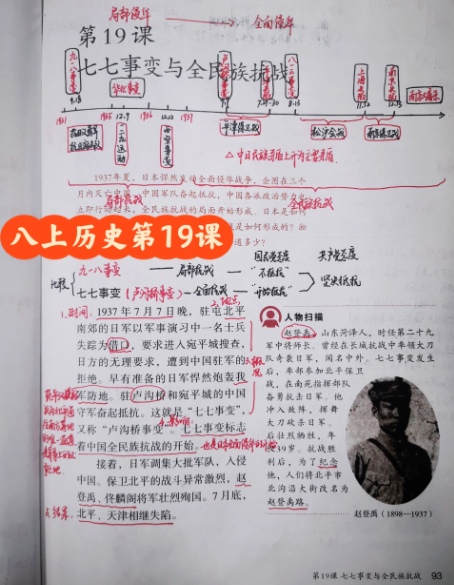 局部侵华 → 全面侵华
第19课
七七事变与全民族抗战
九一八事变
华北事变
卢沟桥事变
八一三事变
上海
南京
9.18
12.9
7.7
8.13
1931
1935
1936
1937
一二九运动
西安事变
平津保卫战
淞沪会战
南京保卫战
△中日民族矛盾上升为主要矛盾
1937年夏，日本悍然发动全面侵华战争，企图在三个
月内灭亡中国，中国军队奋起抵抗，中国各政治势力也
立即行动起来，全民族抗战的局面开始形成。日本是如何
局部抗战
全面抗战
八上历史第19课
比较
九一八事变 —— 局部抗战
国民党态度
"不抵抗"
共产党态度
七七事变（卢沟桥事变）— 全面抗战
"开始抵抗"
坚决抵抗
1.时间
2.地点
1937年7月7日晚，驻屯北平
南郊的日军以军事演习中一名士兵
失踪为借口，要求进入宛平城搜查，
日方的无理要求，遭到中国驻军的
拒绝。早有准备的日军悍然炮轰我
军防地。驻卢沟桥和宛平城的中国
守军奋起抵抗。这就是"七七事变"，
又称"卢沟桥事变"。七七事变标志
着中国全民族抗战的开始。
3.概况
4.影响
接着，日军调集大批军队，入侵
中国。保卫北平的战斗异常激烈，赵
登禹、佟麟阁将军壮烈殉国。7月底，
北平、天津相继失陷。
人物扫描
赵登禹，山东菏泽人，时任第二十九
军中将师长。曾经在长城抗战中率领大刀
队夜袭日军，闻名中外。七七事变发生
后，率部参加北平保卫
战，在南苑指挥部队
奋勇抗击日军。他
冲入敌阵，挥舞
大刀砍杀日军，
后壮烈牺牲，年
仅39岁。抗战胜
利后，为了纪念
他，人们将北平市
北沟沿大街改名为
赵登禹路。
赵登禹（1898—1937）
第19课 七七事变与全民族抗战 93